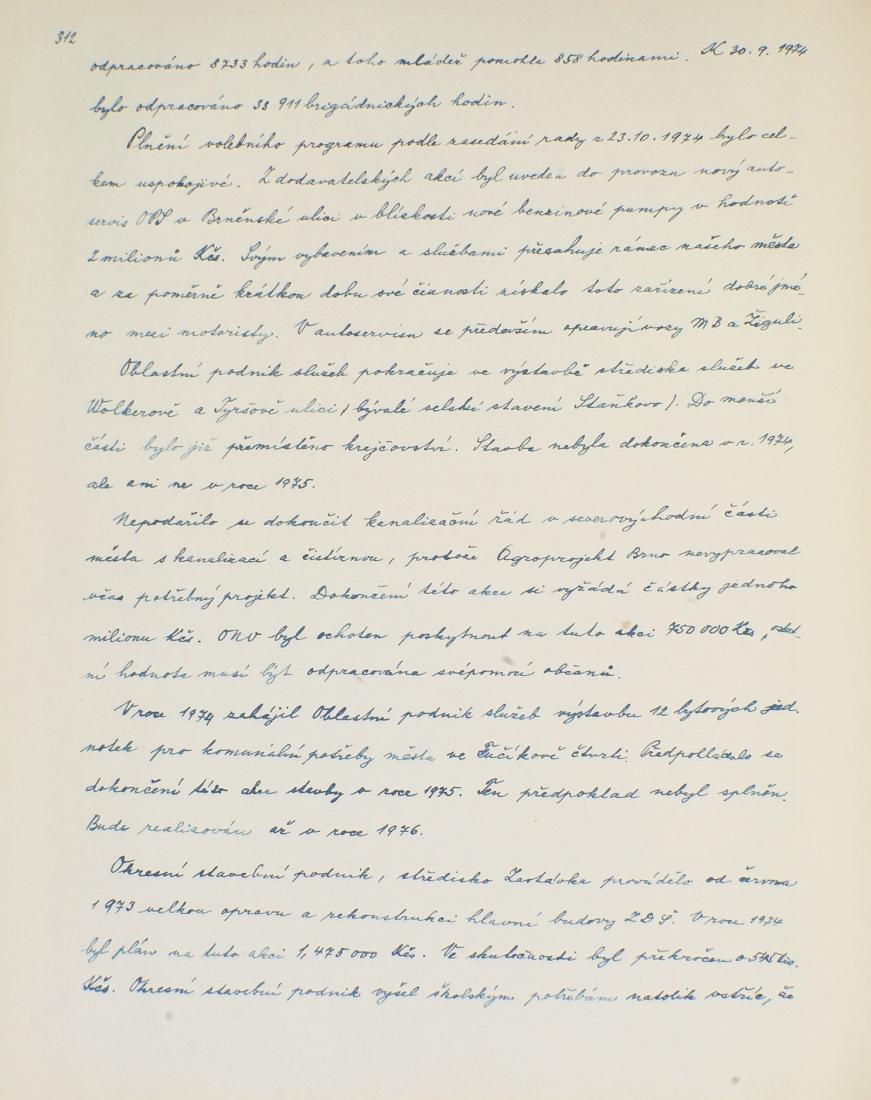 312
odpracováno 8733 hodin, z toho mládež pomohla 858 hodinami. K 30. 9. 1974
bylo odpracováno 33 911 brigádnických hodin.
Plnění volebního programu podle zasedání rady z 23. 10. 1974 bylo cel-
kem uspokojivé. Z dodavatelských akcí byl uveden do provozu nový auto-
servis OPS v Brněnské ulici v blízkosti nové benzinové pumpy v hodnotě
2 milionů Kčs. Svým vybavením a službami přesahuje rámec našeho města
a za poměrně krátkou dobu své činnosti získalo toto zařízení dobré jmé-
no mezi motoristy. V autoservisu se především opravují vozy MB a Žiguli.
Oblastní podnik služeb pokračuje ve výstavbě střediska služeb ve
Wolkerově a Tyršově ulici / bývalé selské stavení Staňkovo /. Do menší
části bylo již přemístěno krejčovství. Stavba nebyla dokončena v r. 1974,
ale ani ne v roce 1975.
Nepodařilo se dokončit kanalizační řád v severovýchodní části
města s kanalizací a čistírnou, protože Agroprojekt Brno nevypracoval
včas potřebný projekt. Dokončení této akce si vyžádá částky jednoho
milionu Kčs. ONV byl ochoten poskytnout na tuto akci 750 000 Kčs, ostat-
ní hodnota musí být odpracována svépomocí občanů.
V roce 1974 zahájil Oblastní podnik služeb výstavbu 12 bytových jed-
notek pro komunální potřeby města ve Fučíkově čtvrti. Předpokládalo se
dokončení této stavby v roce 1975. Ten předpoklad nebyl splněn.
Bude realizován až v roce 1976.
Okresní stavební podnik, středisko Zastávka provádělo od června
1973 velkou opravu a rekonstrukci hlavní budovy ZDŠ. V roce 1974
byl plán na tuto akci 1,475 000 Kčs. Ve skutečnosti byl překročen o tis.
Kčs. Okresní stavební podnik vyšel školským potřebám natolik vstříc, že